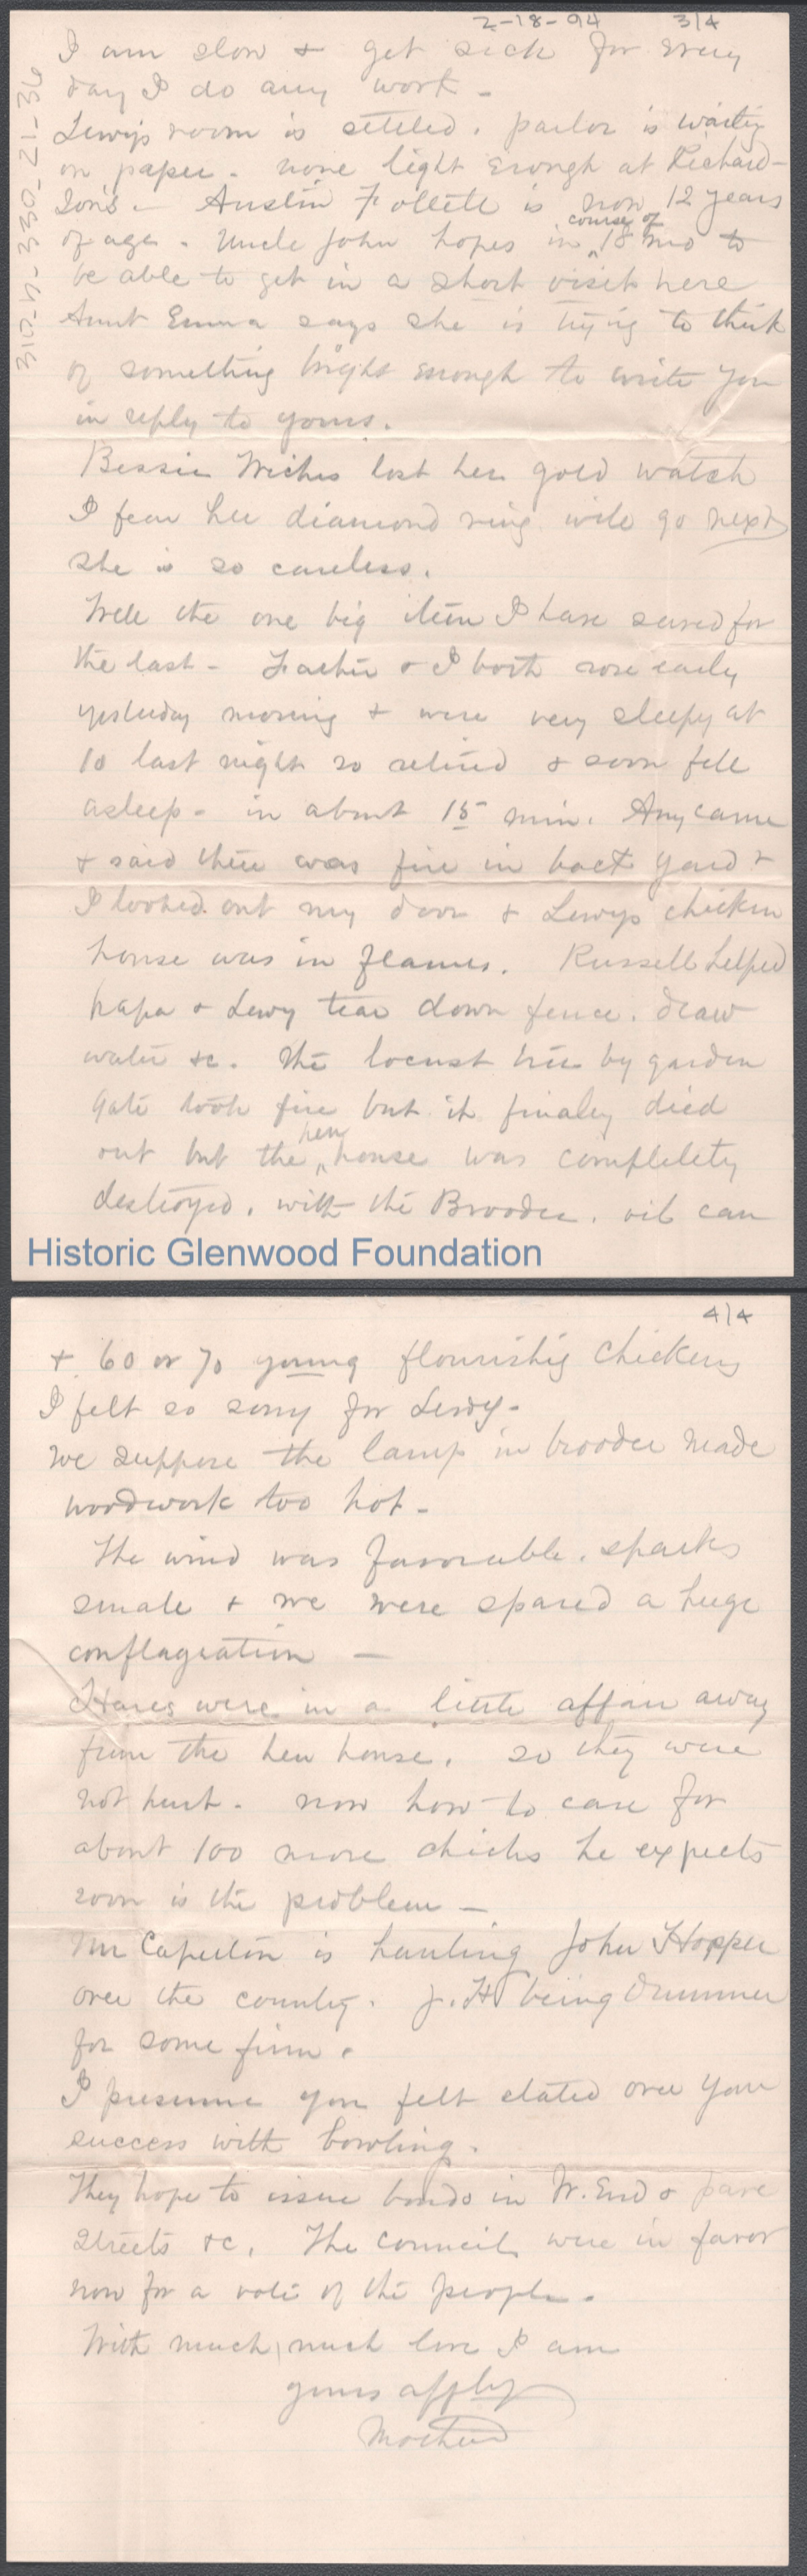 2-18-94 3/4
310-n-330-21-36
I am slow + get sick for every
day I do any work -
Lewys room is settled. parlor is waiting
on paper - none light enough at Richard-
son's - Austin Follett is now 12 years
of age. Uncle John hopes in course of 18 mo to
be able to get in a short visit here
Aunt Emma says she is trying to think
of something bright enough to write you
in reply to yours.
Bessie Wiches lost her gold watch
I fear her diamond ring will go next
she is so careless.
Well the one big item I have saved for
the last - Father & I both rose early
yesterday morning + were very sleepy at
10 last night so retired & soon fell
asleep - in about 15 min. Amy came
& said there was fire in back yard &
I looked out my door & Lewys chicken
house was in flames. Russell helped
papa & Lewy tear down fence. draw
water &c. The locust tree by garden
gate took fire but it finaly died
out but the hen house was completely
destroyed. with the Brooder. oil can
Historic Glenwood Foundation
4/4
+ 60 or 70 young flourishig chickens
I felt so sorry for Lewy -
We suppose the lamp in brooder made
woodwork too hot -
The wind was favorable. sparks
small & we were spared a huge
conflagration -
Hares were in a little affair away
from the hen house. so they were
not hurt - now how to care for
about 100 more chicks he expects
soon is the problem -
Mr Caperton is hauling John Hopper
over the country. J. H being Drummer
for some firm.
I presume you felt elated over your
success with bowling.
They hope to issue bonds in W. End & pave
streets &c. The council were in favor
now for a vote of the people.
With much, much love I am
yours affly
Mother